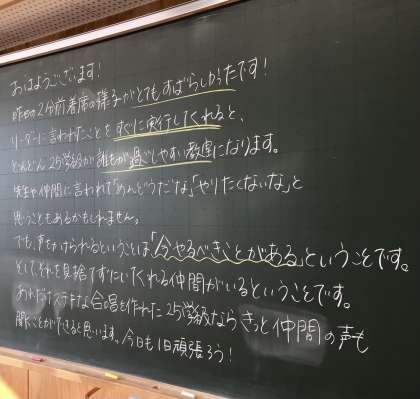 おはようございます!
昨日の2分前着席の様子がとてもすばらしかったです!
リーダーに言われたことをすぐに実行してくれると、
どんどん25学級が誰もが過ごしやすい教室になります。
先生や仲間に言われて「めんどうだな」「やりたくないな」と
思うこともあるかもしれません。
でも、声をかけられるということは「今やるべきことがある」ということです。
そして、それを見捨てずにいてくれる仲間がいるということです。
あれだけステキな合唱を作れた25学級ならきっと仲間の声も
聞くことができると思います。今日も1日頑張ろう!